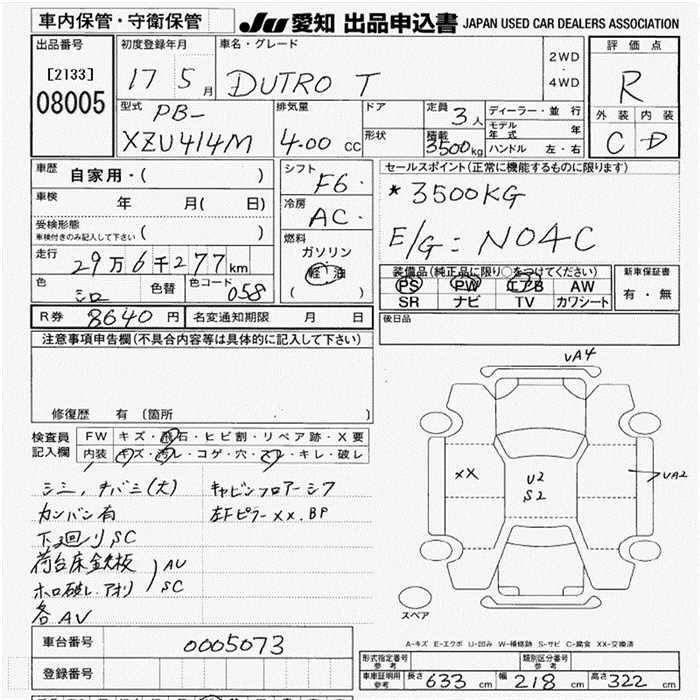 車内保管・守衛保管
JU 愛知 出品申込書 JAPAN USED CAR DEALERS ASSOCIATION
出品番号
[2133]
08005
初度登録年月
17 5月
車名・グレード
DUTRO T
2WD
・
4WD
評価点
R
外装 内装
C D
型式
PB-
XZU414M
排気量
4.00 cc
ドア
形状
定員 3人
積載 3500kg
ディーラー・並行
モデル年式 年
ハンドル 左・右
車歴
自家用・( )
車検
年 月( 日)
受検形態
車検付きのみ記入して下さい ( )
走行
29万6千277km
色 シロ 色替 色コード 058
シフト
F6・
冷房
AC・
燃料
ガソリン
軽油
( )
セールスポイント(正常に機能するものに限ります)
* 3500KG
E/G: N04C
装備品(純正品に限り○をつけてください)
PS PW エアB AW
SR ナビ TV カワシート
新車保証書
有・無
R券 8640 円 名変通知期限 月 日
後日品
注意事項申告欄(不具合内容等は具体的に記入して下さい)
修復歴 有 〔箇所 〕
検査員
記入欄
FW キズ・飛石・ヒビ割・リペア跡・X要
内装 キズ・汚レ・コゲ・穴・スレ・キレ・破レ
シミ,チバミ(大)
カンバン有
下廻りSC
荷台床鉄板
ホロ破レ.アオリ
AU
SC
各AU
キャビンフロアーシワ
左Fピラーxx.BP
UA4
XX
U2
S2
UA2
スペア
A-キズ E-エクボ U-凹み W-補修跡 S-サビ C-腐食 XX-交換済
車台番号 0005073
登録番号
形式指定番号
参考
類別区分番号
参考
車庫証明用
参考
長さ 633 cm 幅 218 cm 高さ 322 cm